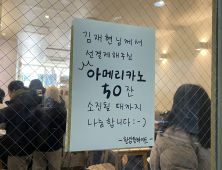 김재현님께서
선결제해주신
아메리카노
50잔
소진될 때까지
나눔합니다 :-)